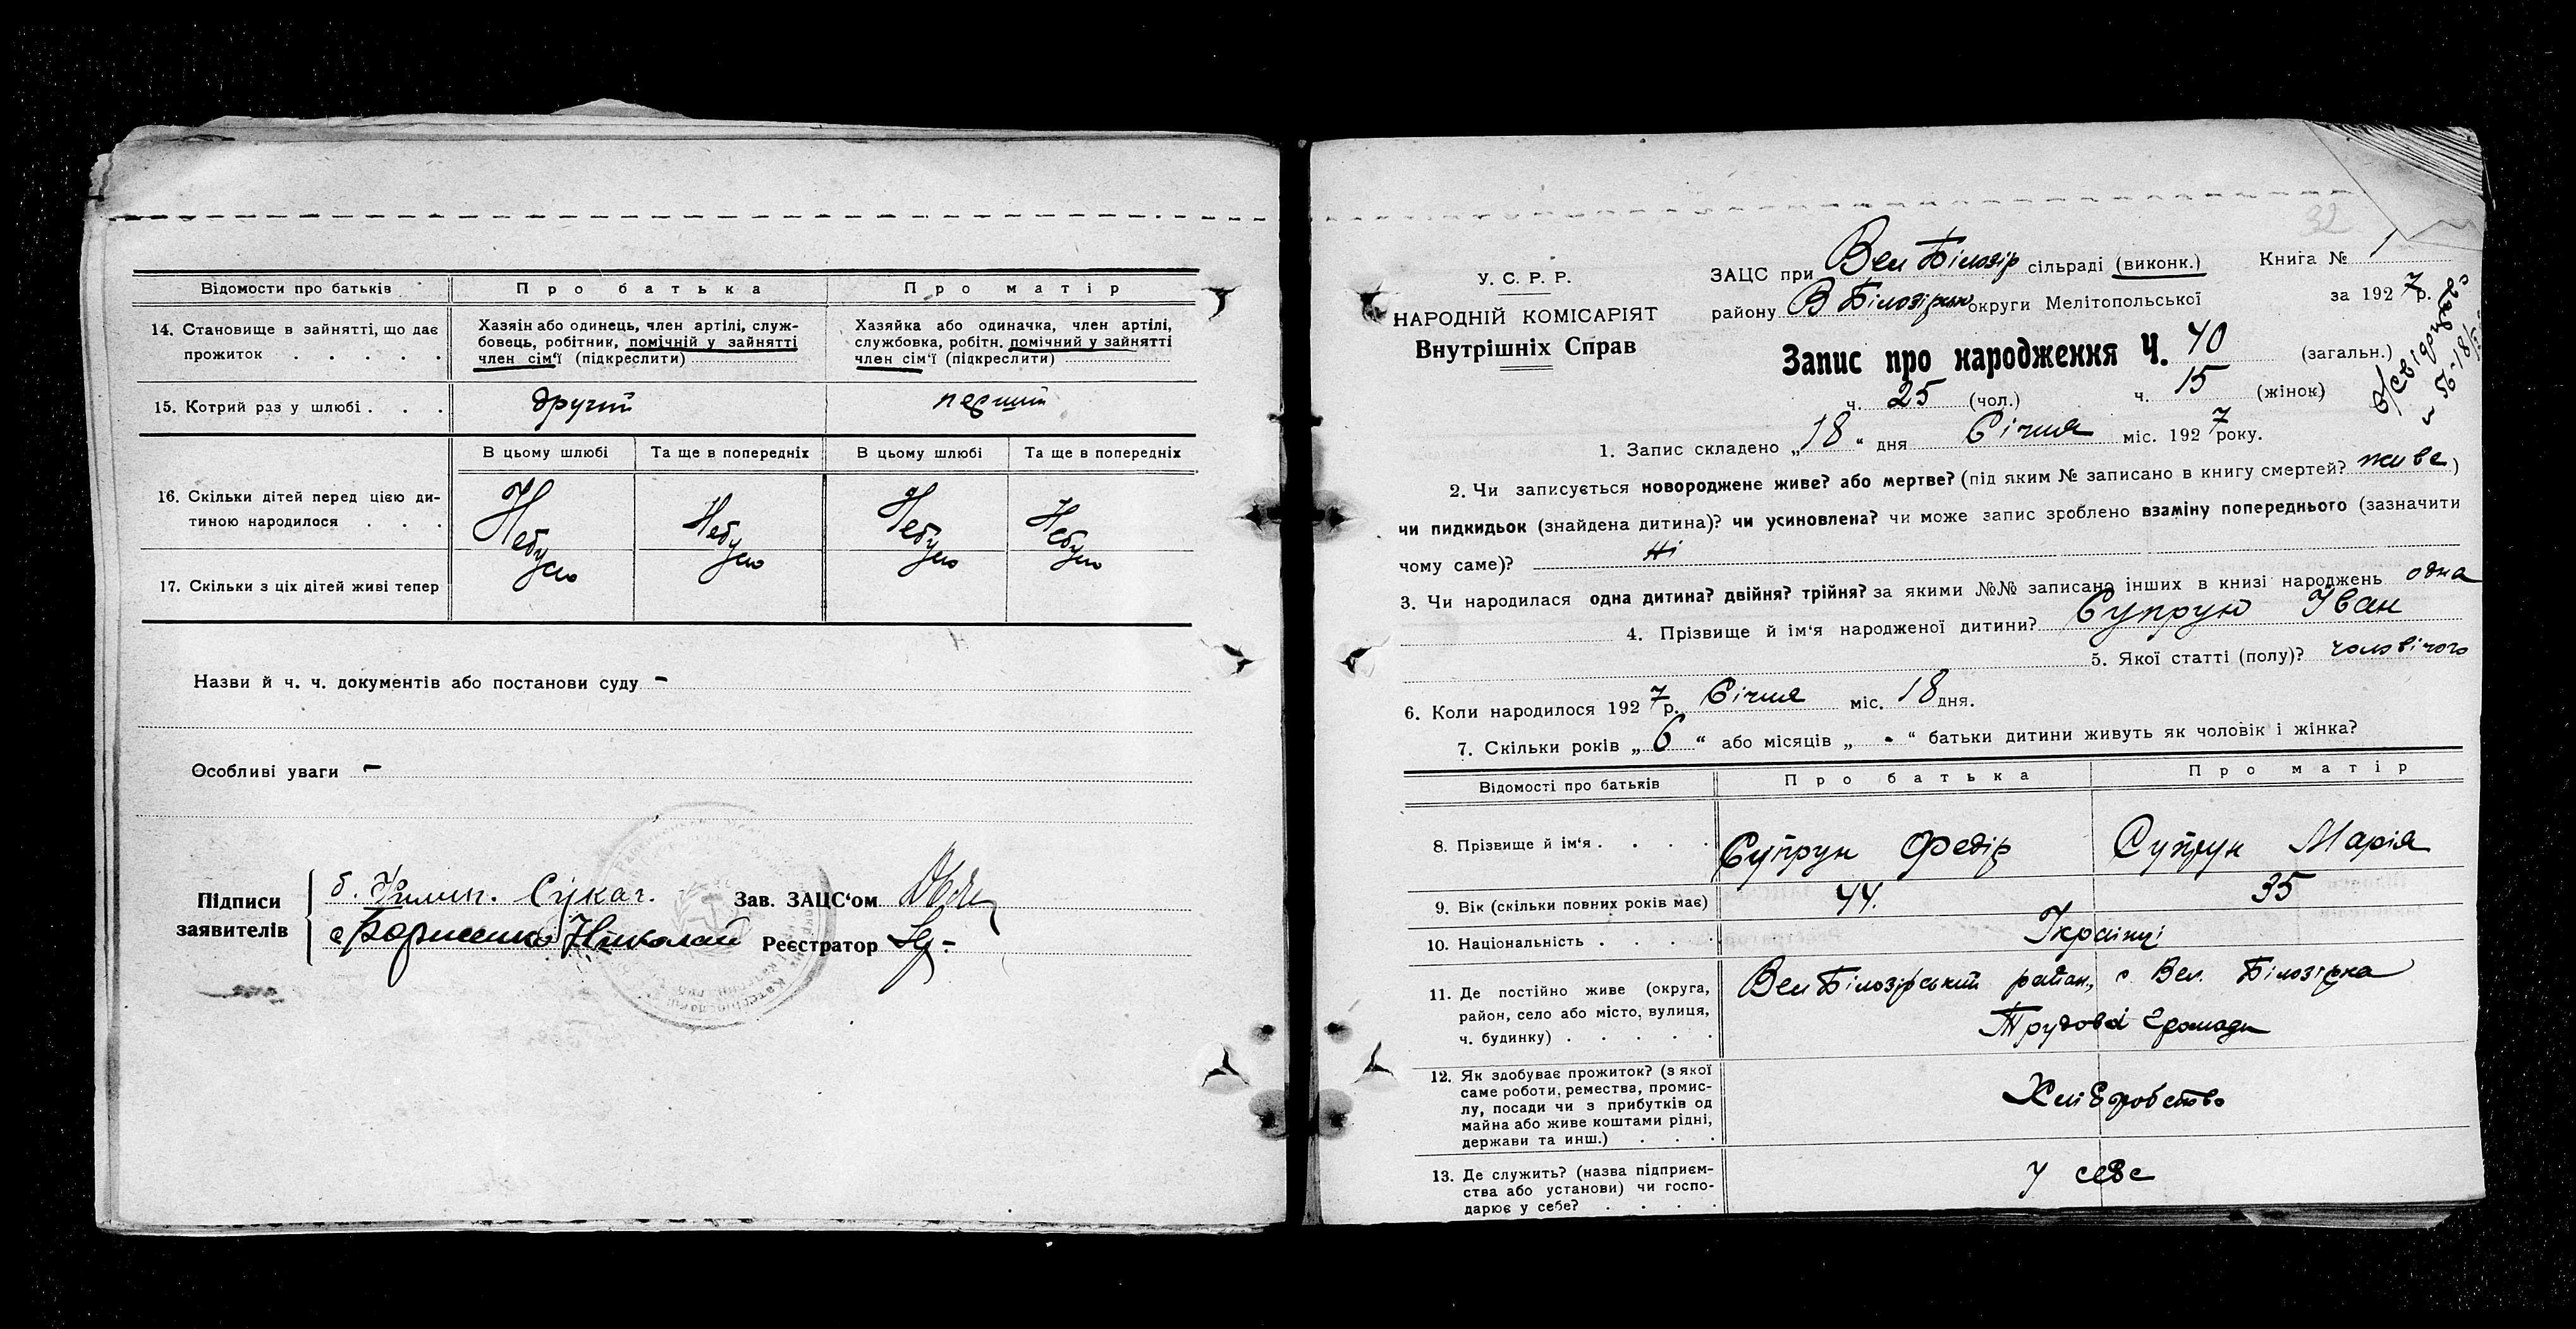 Відомости про батьків Про батька Про матір
14. Становище в зайнятті, що дає прожиток . . . . .
Хазяін або одинець, член артілі, служ-
бовець, робітник, помічній у зайнятті
член сім'ї (підкреслити)
Хазяйка або одиначка, член артілі,
службовка, робітн. помічний у зайнятті
член сім'ї (підкреслити)
15. Котрий раз у шлюбі . . . другий перший
В цьому шлюбі Та ще в попередніх В цьому шлюбі Та ще в попередніх
16. Скільки дітей перед цією ди-
тиною народилося . . .
Небуло Небуло Небуло Небуло
17. Скільки з ціх дітей живі тепер
Назви й ч. ч. документів або постанови суду -
Особливі уваги -
Підписи
заявителів
Сукач. Зав. ЗАЦС'ом
Борисенко Николай Реєстратор
32
У. С. Р. Р.
НАРОДНІЙ КОМІСАРІЯТ
Внутрішніх Справ
ЗАЦС при Вел Білозір сільраді (виконк.) Книга № 1
району В Білозірськ округи Мелітопольської за 1927 р.
Запис про народження Ч. 40 (загальн.)
ч. 25 (чол.) ч. 15 (жінок)
1. Запис складено „18“ дня Січня міс. 1927 року.
2. Чи записується новороджене живе? або мертве? (під яким № записано в книгу смертей? живе)
чи пидкидьок (знайдена дитина)? чи усиновлена? чи може запис зроблено взаміну попереднього (зазначити
чому саме)? Ні
3. Чи народилася одна дитина? двійня? трійня? за якими №№ записано інших в книзі народжень одна
4. Прізвище й ім'я народженої дитини? Супрун Іван
5. Якої статті (полу)? чоловічого
6. Коли народилося 1927 р. Січня міс. 18 дня.
7. Скільки років „6“ або місяців „-“ батьки дитини живуть як чоловік і жінка?
Відомості про батьків Про батька Про матір
8. Прізвище й ім'я . . . . Супрун Федір Супрун Марія
9. Вік (скільки повних років має) 44. 35
10. Національність . . . . Українці
11. Де постійно живе (округа,
район, село або місто, вулиця,
ч. будинку) . . . . .
Вел Білозірський район, с Вел. Білозірка
Трудової Громади
12. Як здобуває прожиток? (з якої
саме роботи, ремества, промис-
лу, посади чи з прибутків од
майна або живе коштами рідні,
держави та инш.) . . .
Хліборобство
13. Де служить? (назва підприєм-
ства або установи) чи госпо-
дарює у себе? . . . .
У себе